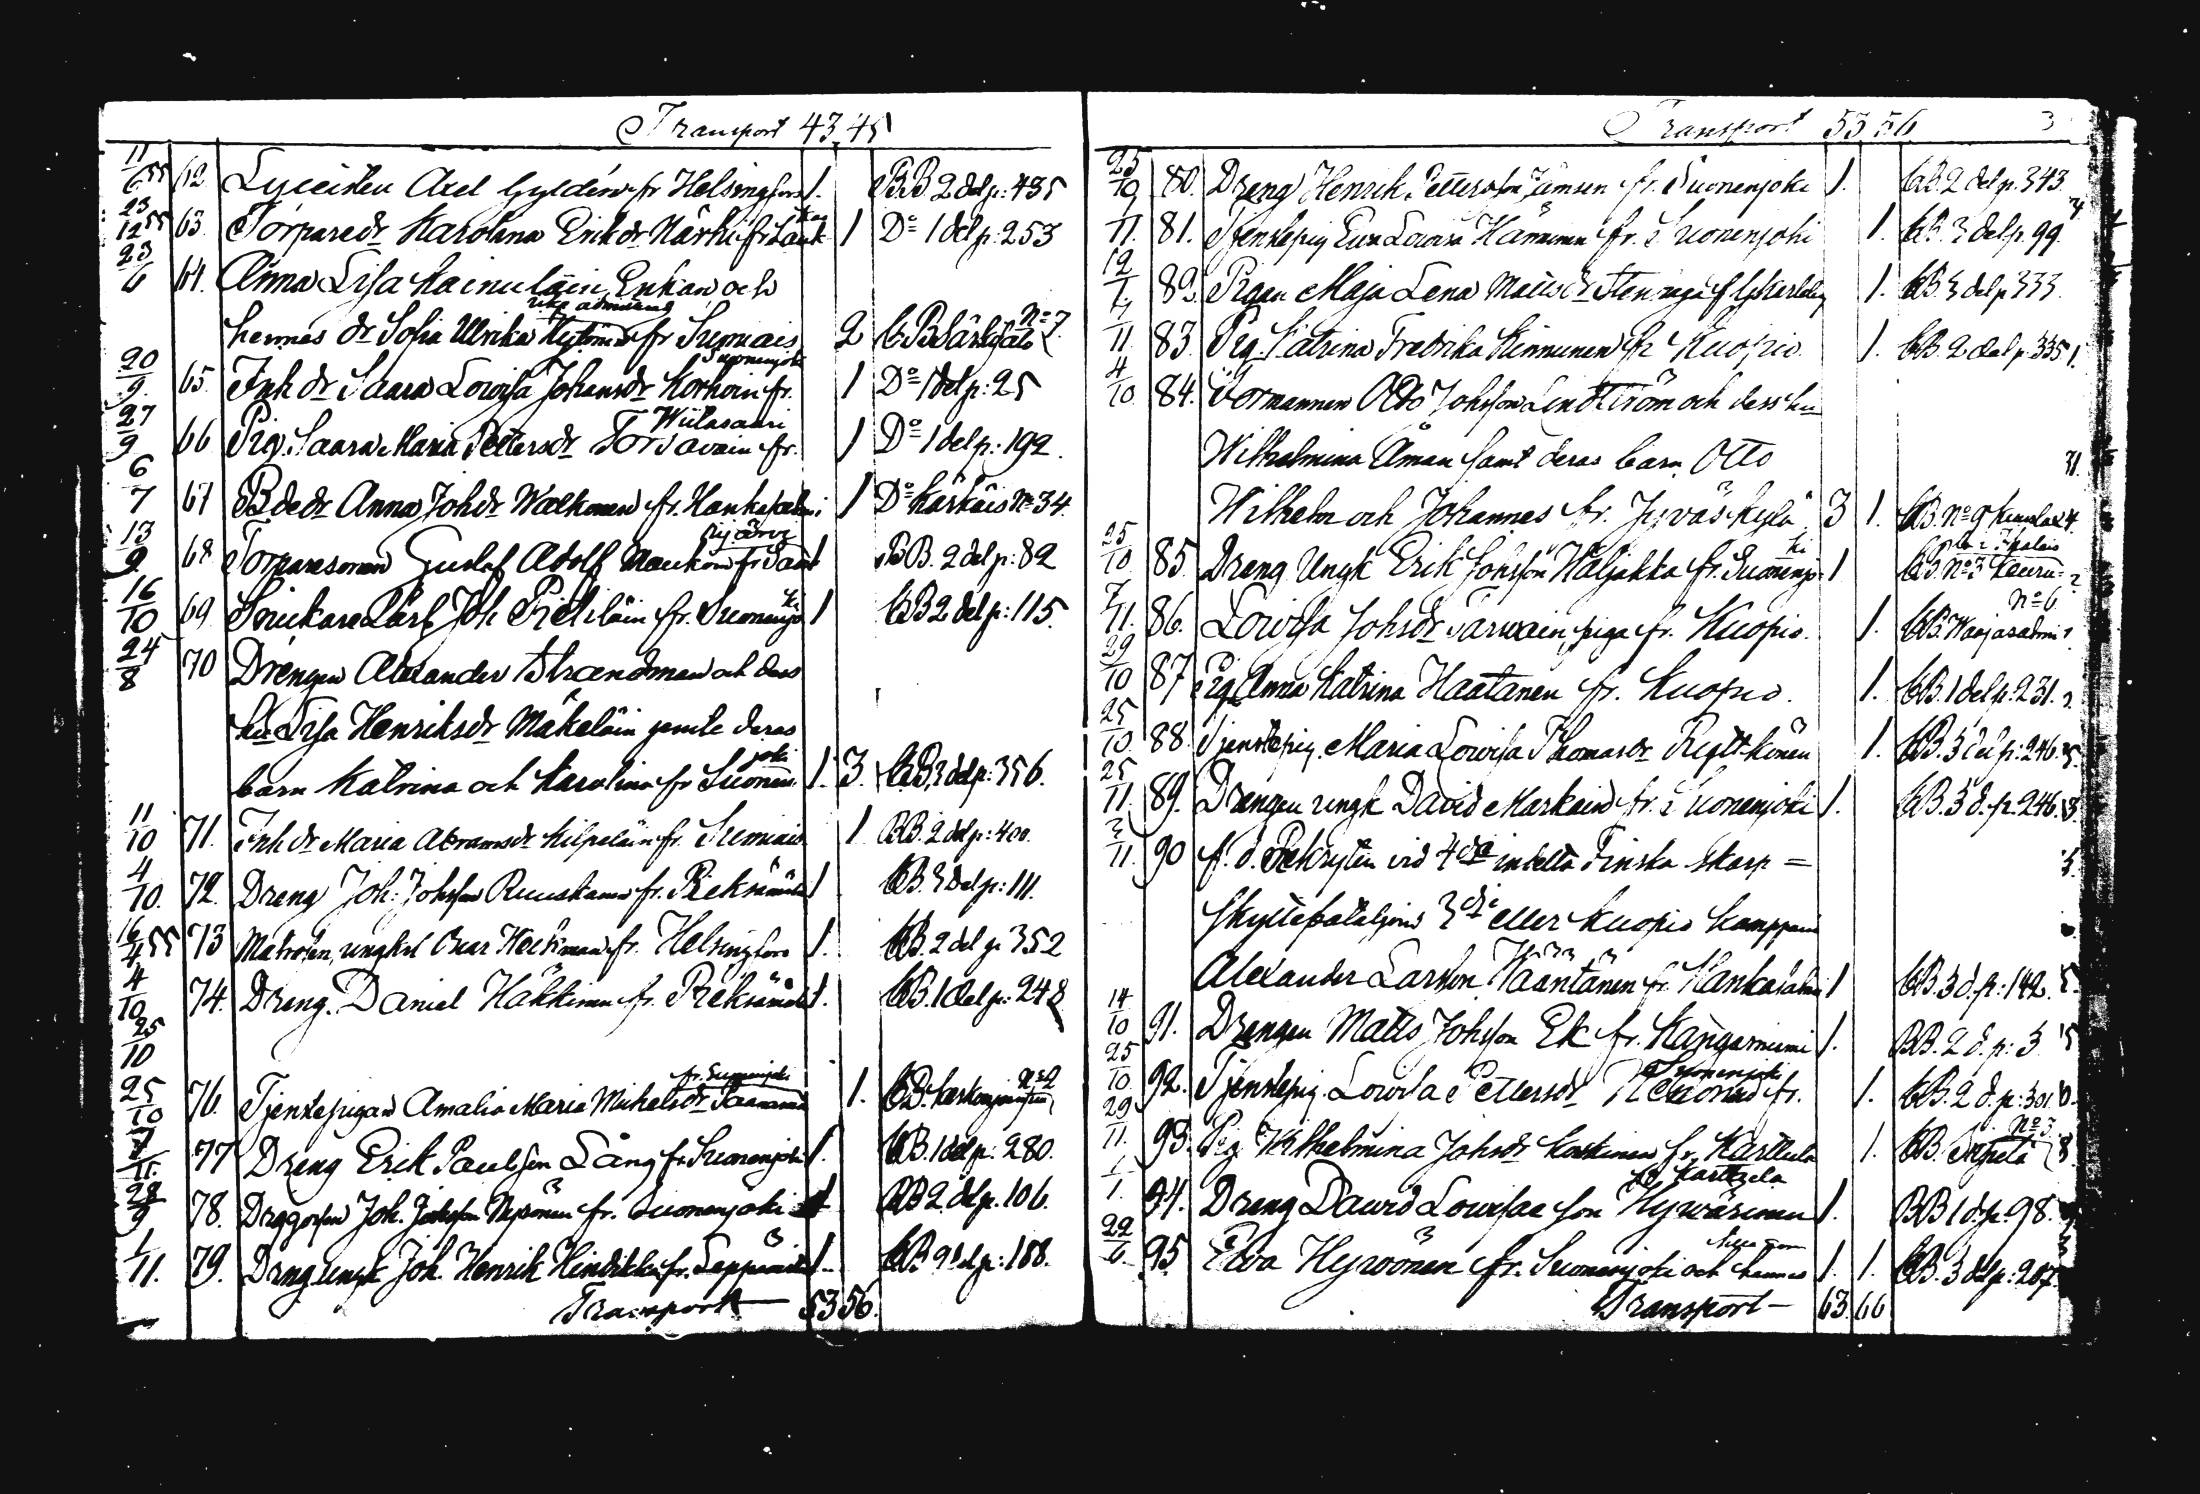 Transport 43 45
11/6 55 62 Lyceisten Axel Gyldén fr Helsingfors 1. BB 2 del p: 435
23/12 55 63. Torpare dr Karolina Erik dr Närhi fr Lauk 1 Do 1 del p: 253
23/6 64. Anna Lisa Kainulain Enkan och
hennes dr Sofia Ulrika fr Sumiais 2 No 7
20/9 65. Inh dr Saara Lovisa Johansdr Korhoin fr. Suonenjoki 1 Do 1 del p: 25
27/9 66 Pig. Saara Maria Pettersdr fr. Wiitasaari 1 Do 1 del p: 192.
6/7 67 Bde dr Anna Joh dr Walkonen fr. Hankasalmi 1 Do Kärkäis No 34.
13/9 68 Torparesonen Gustaf Adolf fr Saari järvi 1 BB. 2 del p: 82
16/10 69 Snickare Lärl Joh Pietiläin fr. Suonenjo ki 1 BB 2 del p: 115.
24/8 70 Drengen Alexander Strandman och dess
hu Lisa Henriksdr Mäkeläin jemte deras
barn Katrina och Karolina fr Suonen joki 1. 3. BB 3 del p: 356.
11/10 71. Inh dr Maria Abramsdr Kilpeläin fr. Sumiais 1 BB. 2 del p: 400.
4/10. 72. Dreng Joh: Johsson Ruuskanen fr. Pieksämäki 1 BB. 3 del p: 111.
16/4 55 73 Matrosen, ungkrl Oscar Heckman fr. Helsingfors 1. BB. 2 del p 352
4/10 74. Dreng. Daniel Häkkinen fr. Pieksämäki 1. BB. 1 del p: 248
25/10
25/10 76. Tjenstepigan Amalia Maria Mickelsdr fr. Suonenjoki 1. No 2
7/11. 77 Dreng Erik Paulsson Lång fr Suonenjoki 1. BB. 1 del p: 280.
28/9 78. Joh. Johsson Nysönen fr. Suonenjoki 1 BB 2 del p. 106.
1/11. 79. Dreng ungk Joh. Henrik Hindrikka fr. Leppävirta 1. BB 2 del p: 188.
Transport 53 56.
Transport 53 56 3
25/10 80. Dreng Henrik Pettersson Jämsen fr. Suonenjoki 1. BB. 2 del p. 343.
7/11. 81. Tjenstepig Eva Lovisa Hänninen fr. Suonenjoki 1. BB. 3 del p. 99
12/7 82. Pigan Maja Lena Mattsdr 1. BB. 3 del p 333.
7/11. 83. Pig. Katrina Fredrika Kinnunen fr Kuopio 1. BB. 2 del p. 335
4/10. 84. Vormannen Otto Johsson Lindström och dess hu
Wilhelmina Åman samt deras barn Otto
Wilhelm och Johannes fr. Jyväskylä 3 1. BB. No 9
25/10. 85. Dreng Ungk Erik Johsson Häljakka fr. Suonenjo ki 1 BB. No 3 Keuru
7/11. 86. Lovisa Johsdr piga fr. Kuopio. 1. BB. Waajasalmi No 6
29/10 87 Pig Anna Katrina Haatanen fr. Kuopio. 1. BB. 1 del p. 231.
25/10. 88. Tjenstepig. Maria Lovisa Thomasdr 1. BB. 3 del p: 246.
25/11. 89. Drengen ungk David Markain fr. Suonenjoki 1. BB. 3 d. p. 246.
3/11. 90 f. d. Rekryten vid 4de indelta Finska skarp =
skyttebataljons 3die eller Kuopio kompani
Alexander Larsson Wääntänen fr. Hankasalmi 1 BB. 3 d. p: 142.
14/10 91. Drengen Matts Johsson Ek fr. Kangasniemi 1. BB. 2 d. p: 3
25/10 92. Tjenstepig. Lovisa Pettersdr fr. Suonenjoki 1. BB. 2 d. p: 301
29/11. 93. Pig Wilhelmina Johsdr Koskinen fr. Karttula 1. BB. No 3
1/1. 94. Dreng Dawid Lovisae son Hyvärinen fr Karttula 1. BB 1 d p. 98.
22/6. 95. Eva Hyvönen fr. Suonenjoki och hennes son 1. 1. BB. 3 del p: 207.
Transport 63. 66